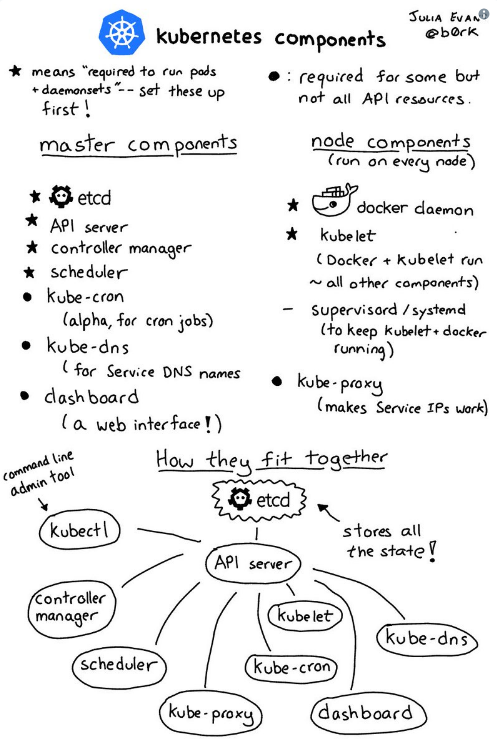 JULIA EVANS
@b0rk
kubernetes components
★ means "required to run pods
+ daemonsets" -- set these up
first!
● : required for some but
not all API resources.
master components
★ etcd
★ API server
★ controller manager
★ scheduler
● kube-cron
(alpha, for cron jobs)
● kube-dns
(for Service DNS names
● dashboard
(a web interface!)
node components
(run on every node)
★ docker daemon
★ kubelet
(Docker + Kubelet run
~ all other components)
– supervisord/systemd
(to keep kubelet + docker
running)
● kube-proxy
(makes Service IPs work)
How they fit together
command line
admin tool
etcd
kubectl
stores all
the state!
API server
controller
manager
kubelet
kube-dns
scheduler
kube-cron
kube-proxy
dashboard